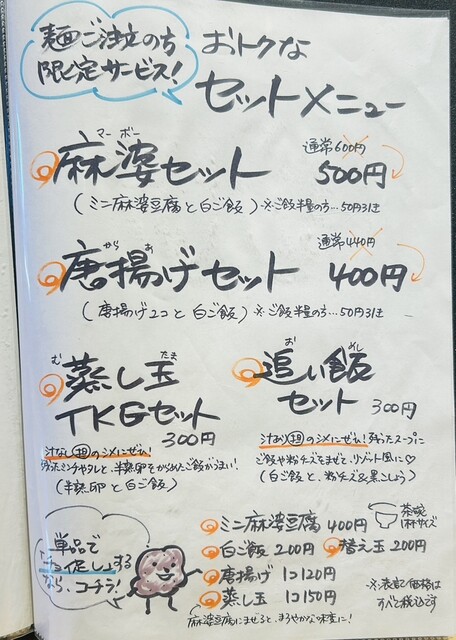 麺ご注文の方
限定サービス!
おトクな
セットメニュー
マーボー
麻婆セット
通常600円
500円
(ミニ麻婆豆腐と白ご飯)※ご飯半量の方…50円引き
から あ
唐揚げセット
通常440円
400円
(唐揚げ2コと白ご飯)※ご飯半量の方…50円引き
む たま
蒸し玉
TKGセット
300円
汁なし担のシメにぜひ!
残ったミンチやタレと、半熟卵をからめたご飯がうまい!
(半熟卵と白ご飯)
お めし
追い飯
セット
300円
汁あり担のシメにぜひ!残ったスープに
ご飯や粉チーズをまぜて、リゾット風に♡
(白ご飯と、粉チーズ&黒こしょう)
単品で
チョイ足しする
なら、コチラ!
ミニ麻婆豆腐 400円
茶碗
1杯サイズ
白ご飯 200円
替え玉 200円
唐揚げ 1コ120円
蒸し玉 1コ150円
麻婆豆腐にまぜると、まろやかな味変に!
※表記価格は
すべて税込です